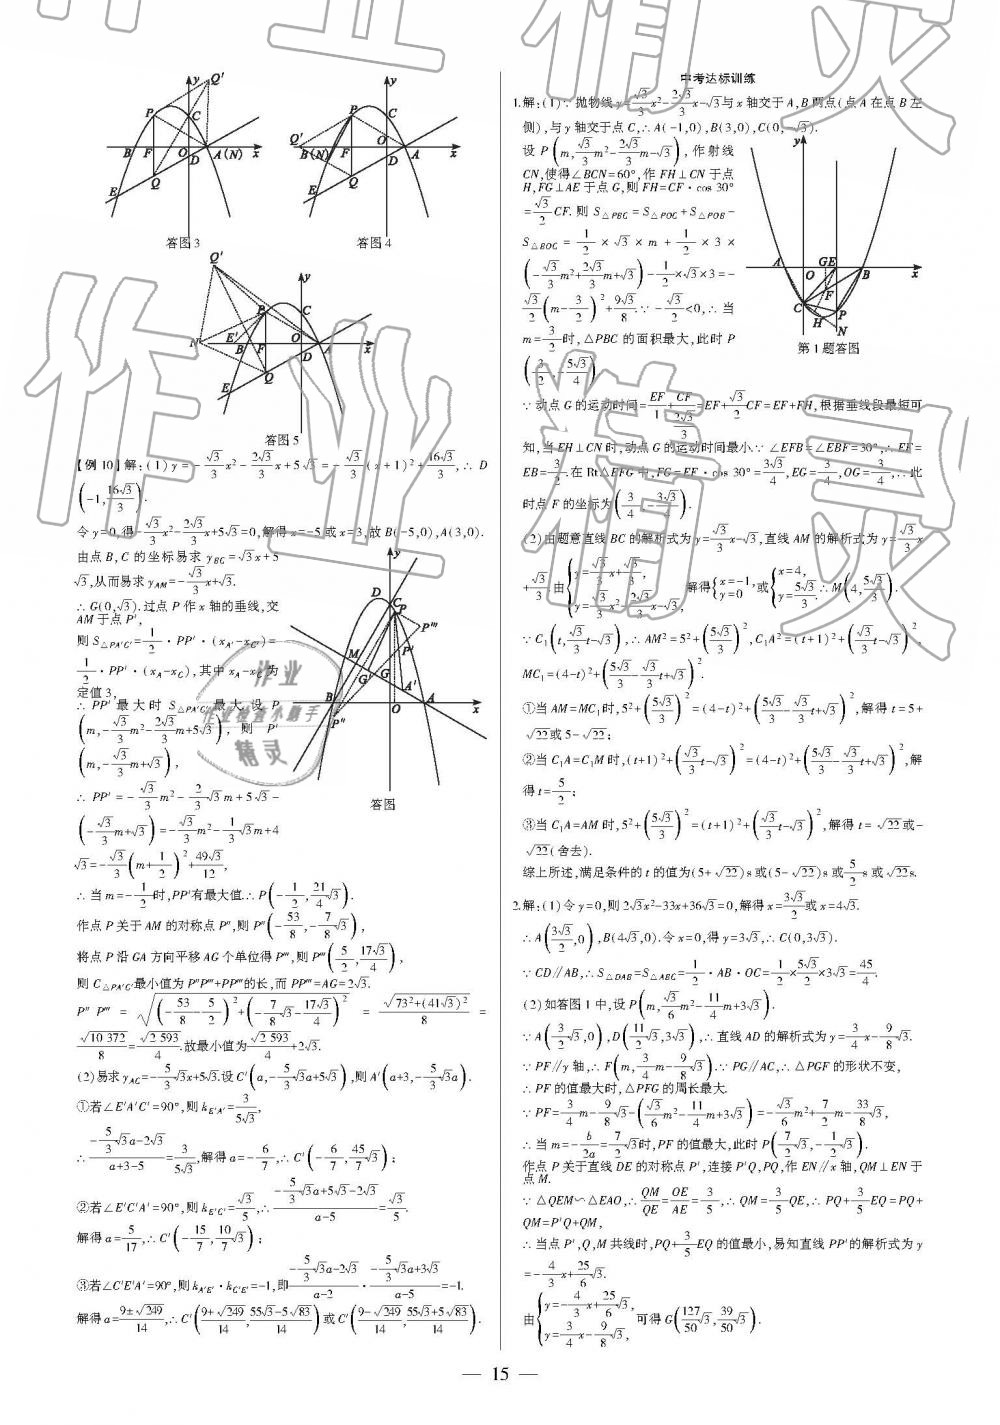 答图3
答图4
答图5
【例10】解:(1)y=-√3/3x²-2√3/3x+5√3=-√3/3(x+1)²+16√3/3,∴D
(-1,16√3/3).
令y=0,得-√3/3x²-2√3/3x+5√3=0,解得x=-5或x=3,故B(-5,0),A(3,0).
由点B,C的坐标易求y_BC=√3x+5
√3,从而易求y_AM=-√3/3x+√3.
∴G(0,√3).过点P作x轴的垂线,交
AM于点P′,
则S△PA′C′=1/2·PP′·(x_A′-x_C′)=
1/2·PP′·(x_A-x_C),其中x_A-x_C为
定值3,
∴PP′最大时S△PA′C′最大,设P
(m,-√3/3m²-2√3/3m+5√3),则P′
(m,-√3/3m+√3),
∴PP′=-√3/3m²-2/3√3m+5√3-
(-√3/3m+√3)=-√3/3m²-1/3√3m+4
√3=-√3/3(m+1/2)²+49√3/12,
答图
∴当m=-1/2时,PP′有最大值.∴P(-1/2,21/4√3).
作点P关于AM的对称点P″,则P″(-53/8,-7/8√3),
将点P沿GA方向平移AG个单位得P‴,则P‴(5/2,17√3/4),
则C△PA′C′最小值为P″P‴+PP‴的长,而PP‴=AG=2√3.
P″P‴=√((-53/8-5/2)²+(-7/8√3-17√3/4)²)=√(73²+(41√3)²)/8=
√10 372/8=√2 593/4.故最小值为√2 593/4+2√3.
(2)易求y_AC=-5/3√3x+5√3.设C′(a,-5/3√3a+5√3),则A′(a+3,-5/3√3a).
①若∠E′A′C′=90°,则k_E′A′=3/5√3,
∴(-5/3√3a-2√3)/(a+3-5)=3/5√3,解得a=-6/7,∴C′(-6/7,45/7√3);
②若∠E′C′A′=90°,则k_E′C′=√3/5,∴(-5/3√3a+5√3-2√3)/(a-5)=√3/5.
解得a=5/17,∴C′(-15/7,10/7√3);
③若∠C′E′A′=90°,则k_A′E′·k_C′E′=-1,即(-5/3√3a-2√3)/(a-2)·(-5/3√3a+3√3)/(a-5)=-1.
解得a=(9±√249)/14,∴C′((9+√249)/14,(55√3-5√83)/14)或C′((9-√249)/14,(55√3+5√83)/14).
中考达标训练
1.解:(1)∵抛物线y=√3/3x²-2√3/3x-√3与x轴交于A,B两点(点A在点B左
侧),与y轴交于点C,∴A(-1,0),B(3,0),C(0,-√3).
设P(m,√3/3m²-2√3/3m-√3),作射线
CN,使得∠BCN=60°,作FH⊥CN于点
H,FG⊥AE于点G,则FH=CF·cos 30°
=√3/2CF.则S△PBC=S△POC+S△POB-
S△BOC=1/2×√3×m+1/2×3×
(-√3/3m²+2√3/3m+√3)-1/2×√3×3=-
√3/2(m-3/2)²+9√3/8.∵-√3/2<0,∴当
m=3/2时,△PBC的面积最大,此时P
(3/2,-5√3/4)
第1题答图
∵动点G的运动时间=EF/1+CF/(2√3/3)=EF+√3/2CF=EF+FH,根据垂线段最短可
知,当EH⊥CN时,动点G的运动时间最小.∵∠EFB=∠EBF=30°,∴EF=
EB=3/2.在Rt△EFG中,FG=EF·cos 30°=3√3/4,EG=3/4,OG=3/4,∴此
时点F的坐标为(3/4,-3√3/4).
(2)由题意直线BC的解析式为y=√3/3x-√3,直线AM的解析式为y=√3/3x
+√3/3.由{y=√3/3x+√3/3, y=√3/3x²-2√3/3x-√3,解得{x=-1, y=0或{x=4, y=5√3/3.∴M(4,5√3/3).
∵C₁(t,√3/3t-√3),∴AM²=5²+(5√3/3)²,C₁A²=(t+1)²+(√3/3t-√3)²,
MC₁=(4-t)²+(5√3/3-√3/3t+√3)².
①当AM=MC₁时,5²+(5√3/3)²=(4-t)²+(5√3/3-√3/3t+√3)²,解得t=5+
√22或5-√22;
②当C₁A=C₁M时,(t+1)²+(√3/3t-√3)²=(4-t)²+(5√3/3-√3/3t+√3)²,解
得t=5/2;
③当C₁A=AM时,5²+(5√3/3)²=(t+1)²+(√3/3t-√3)²,解得t=√22或-
√22(舍去).
综上所述,满足条件的t的值为(5+√22)s或(5-√22)s或5/2s或√22s.
2.解:(1)令y=0,则2√3x²-33x+36√3=0,解得x=3√3/2或x=4√3.
∴A(3√3/2,0),B(4√3,0).令x=0,得y=3√3,∴C(0,3√3).
∵CD∥AB,∴S△DAB=S△ABC=1/2·AB·OC=1/2×5√3/2×3√3=45/4.
(2)如答图1中,设P(m,√3/6m²-11/4m+3√3).
∵A(3/2√3,0),D(11/2√3,3√3),∴直线AD的解析式为y=3/4x-9/8√3.
∵PF∥y轴,∴F(m,3/4m-9/8√3).∵PG∥AC,∴△PGF的形状不变,
∴PF的值最大时,△PFG的周长最大.
∵PF=3/4m-9/8√3-(√3/6m²-11/4m+3√3)=-√3/6m²+7/2m-33/8√3,
∴当m=-b/2a=7/2√3时,PF的值最大,此时P(7/2√3,-1/2√3).
作点P关于直线DE的对称点P′,连接P′Q,PQ,作EN∥x轴,QM⊥EN于
点M.
∵△QEM∽△EAO,∴QM/QE=OE/AE=3/5,∴QM=3/5QE,∴PQ+3/5EQ=PQ+
QM=P′Q+QM,
∴当点P′,Q,M共线时,PQ+3/5EQ的值最小,易知直线PP′的解析式为y
=-4/3x+25/6√3.
由{y=-4/3x+25/6√3, y=3/4x-9/8√3,可得G(127/50√3,39/50√3).
— 15 —